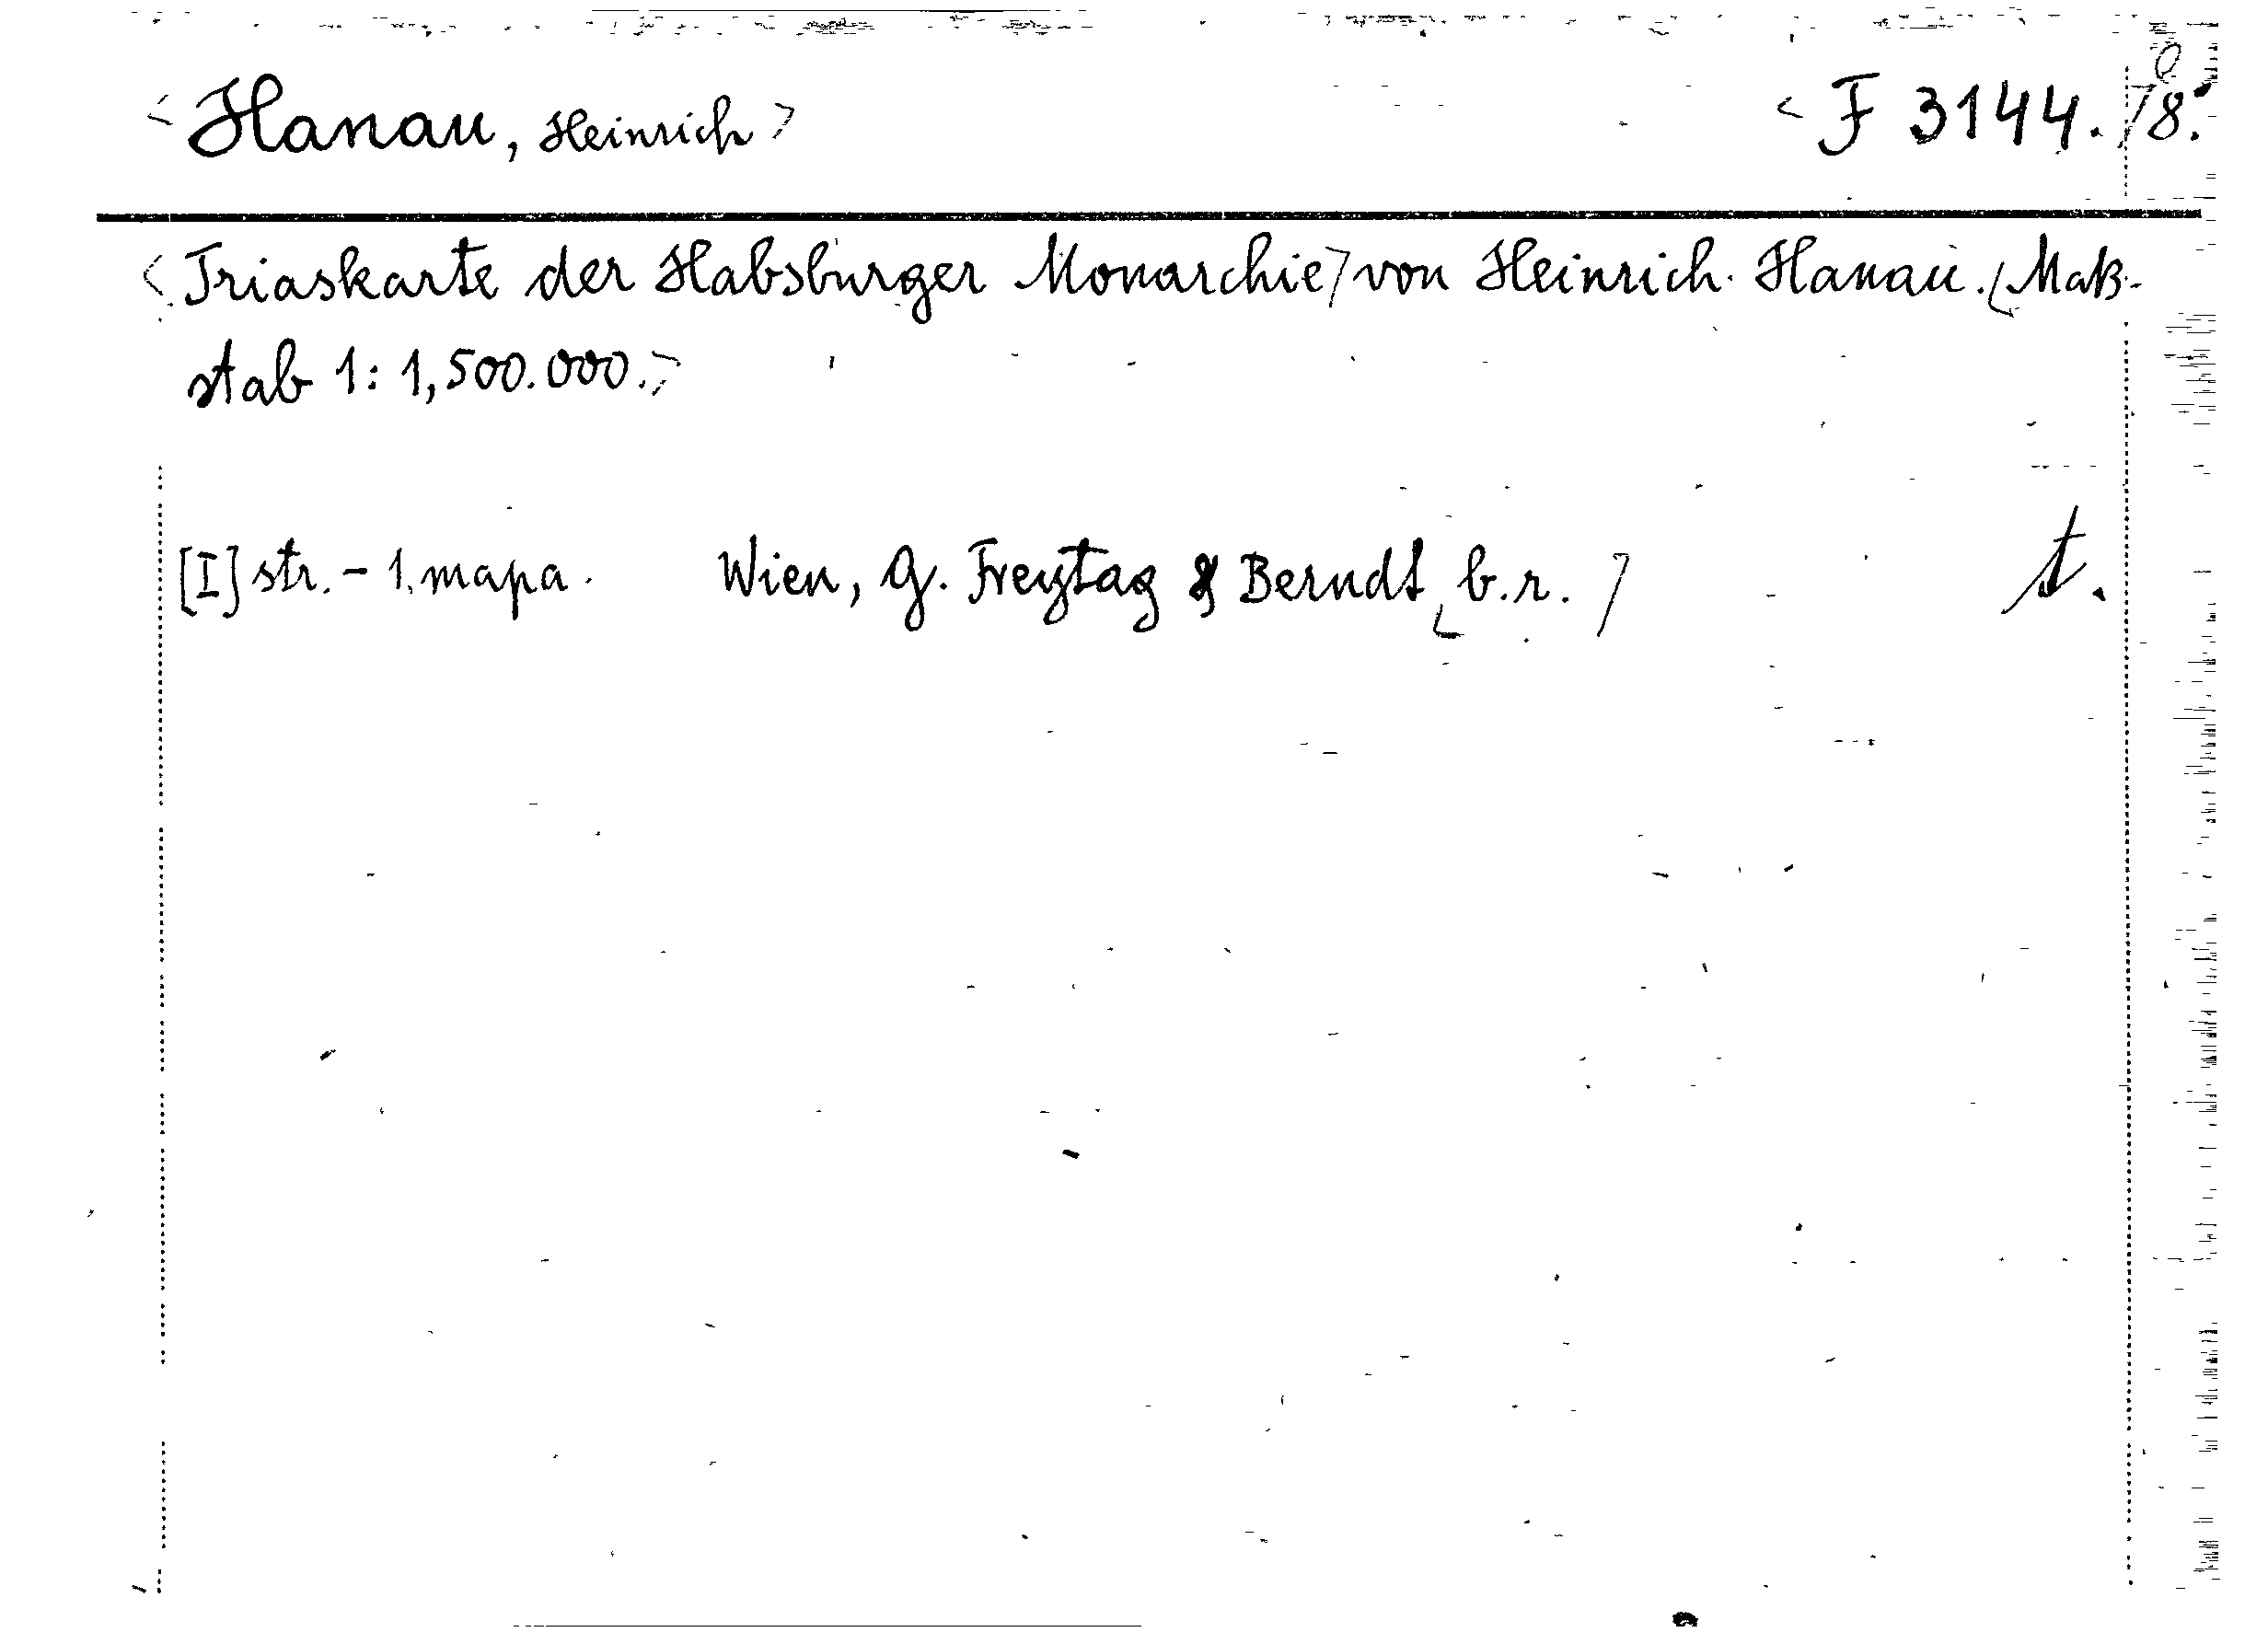 <Hanau, Heinrich> <F 3144./8.°
<Triaskarte der Habsburger Monarchie> von Heinrich Hanau. <Maß-
stab 1: 1,500.000.>
[I] str. - 1. mapa. Wien, G. Freytag & Berndt <b.r.> t.